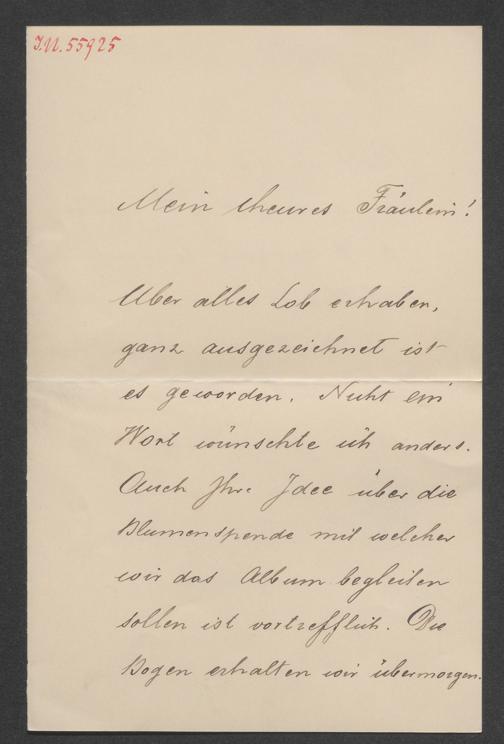 I.N. 55925
Mein theures Fräulein!
Über alles Lob erhaben,
ganz ausgezeichnet ist
es geworden. Nicht ein
Wort wünschte ich anders.
Auch Ihre Idee über die
Blumenspende mit welcher
wir das Album begleiten
sollen ist vortrefflich. Die
Bogen erhalten wir übermorgen.